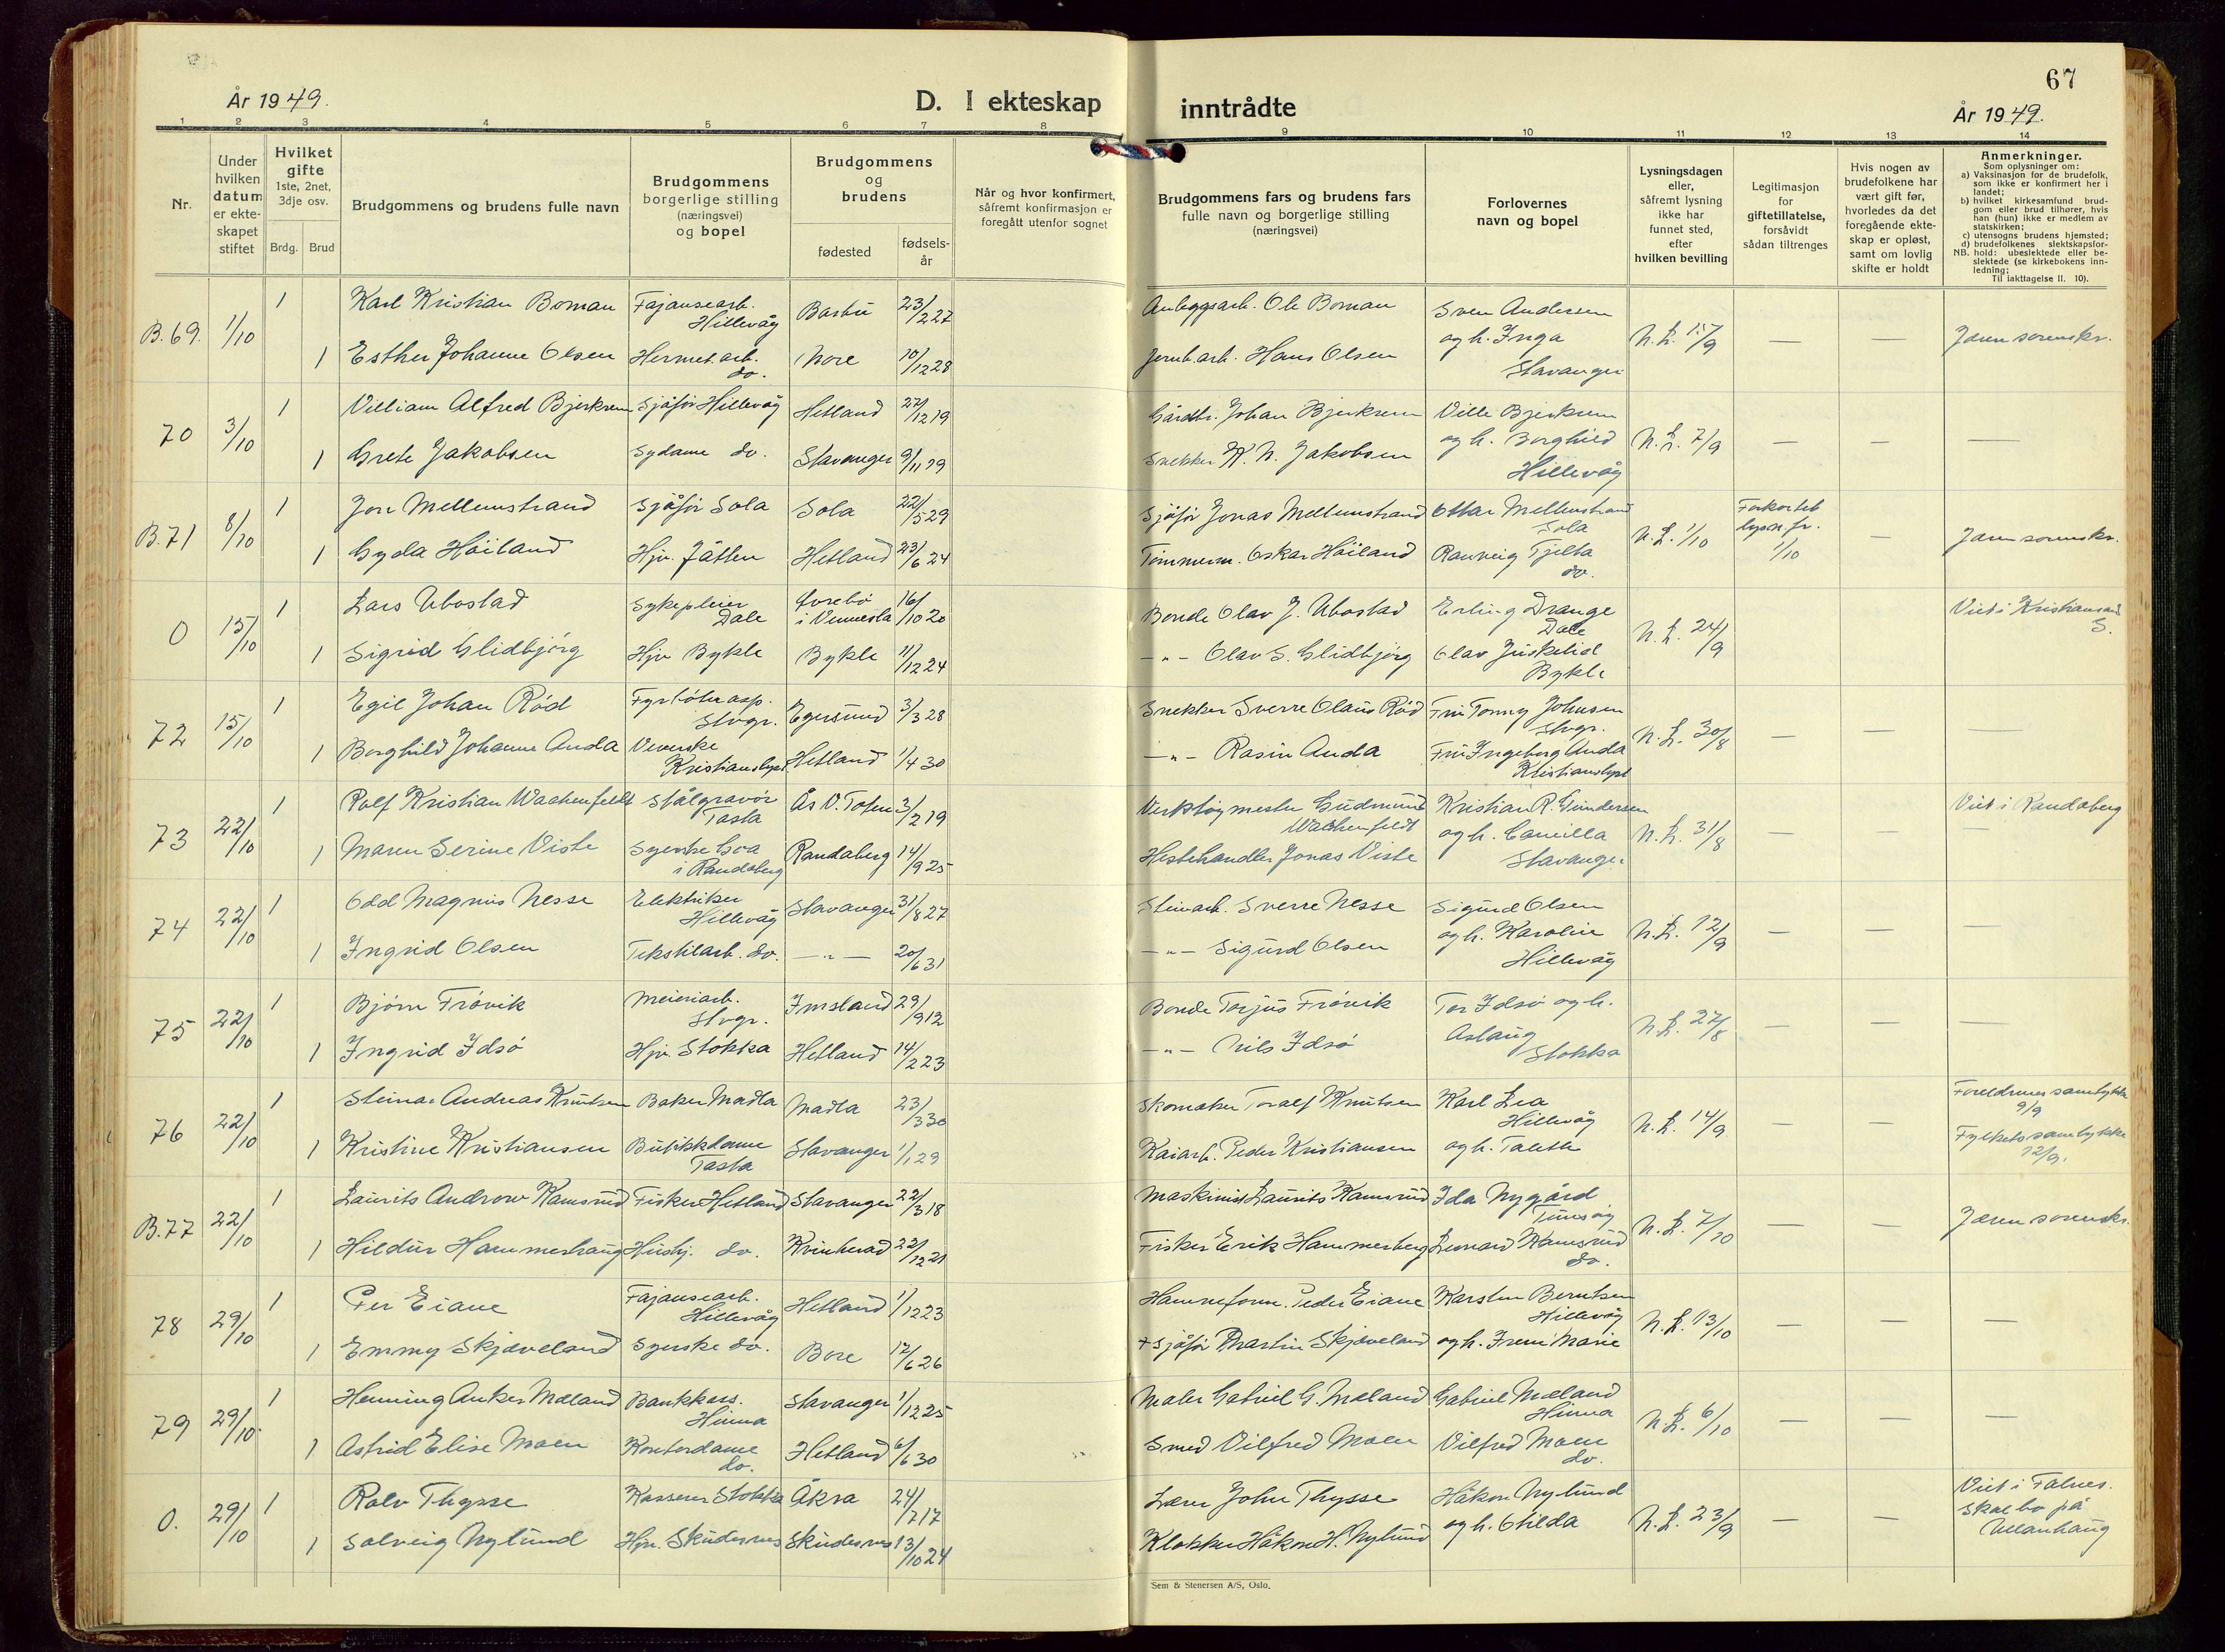 År 1949.
D. I ekteskap
1 2 3 4 5 6 7 8
Nr.
Under hvilken datum er ekteskapet stiftet
Hvilket gifte 1ste, 2net, 3dje osv.
Brdg. Brud
Brudgommens og brudens fulle navn
Brudgommens borgerlige stilling (næringsvei) og bopel
Brudgommens og brudens
fødested
fødsels-år
Når og hvor konfirmert, såfremt konfirmasjon er foregått utenfor sognet
B.69. 1/10 1 Karl Kristian Boman Fajansearb. Hillevåg Bastu 23/2 27
1 Esther Johanne Olsen Hermet.arb. do. Nore 10/12 28
70 3/10 1 Villiam Alfred Bjerkrem Sjåfør Hillevåg Hetland 27/12 19
1 Grete Jakobsen Sydame do. Stavanger 9/11 29
B.71 8/10 1 Jon Mellemstrand Sjåfør Sola Sola 22/5 29
1 Gyda Høiland Hjv. Jåtten Hetland 23/6 24
0 15/10 1 Lars Ubostad Sykepleier Dale i Vennesla 16/10 20
1 Sigrid Glidbjörg Hjv Bykle Bykle 11/12 24
72 15/10 1 Egil Johan Rød Stvgr. Egersund 3/3 28
1 Borghild Johanne Anda Veverske Kristianslyst Hetland 1/4 30
73 22/10 1 Rolf Kristian Wachenfeldt Stålgravør Tasta Ås V. Toten 3/2 19
1 Maren Serine Viste Syerske Goa i Randaberg Randaberg 14/9 25
74 22/10 1 Odd Magnus Nesse Elektriker Hillevåg Stavanger 31/8 27
1 Ingrid Olsen Tekstilarb. do. — " — 20/6 31
75 22/10 1 Bjørn Frøvik Meieriarb. Stvgr. Imsland 29/9 12
1 Ingrid Idsø Hjv. Stokka Hetland 14/2 23
76 22/10 1 Steinar Andreas Knutsen Baker Madla Madla 23/3 30
1 Kristine Kristiansen Butikkdame Tasta Stavanger 1/1 29
B.77 22/10 1 Laurits Andrew Ramsrud Fisker Hetland Stavanger 22/3 18
1 Hildur Hammerhaug Hushj. do. Kvinherad 22/12 21
78 29/10 1 Per Eiane Fajansearb. Hillevåg Hetland 1/12 23
1 Emmy Skjæveland Syerske do. Bore 12/6 26
79 29/10 1 Henning Anker Mæland Bankkass. Hinna Stavanger 1/12 25
1 Astrid Elise Moen Kontordame do. Hetland 6/6 30
0. 29/10 1 Rolv Thysse Kasserer Stokka Åkra 24/7 17
1 Solveig Nylund Hjv. Skudesnes Skudesnes 13/10 24
67
inntrådte
År 1949.
9 10 11 12 13 14
Brudgommens fars og brudens fars fulle navn og borgerlige stilling (næringsvei)
Forlovernes navn og bopel
Lysningsdagen eller, såfremt lysning ikke har funnet sted, efter hvilken bevilling
Legitimasjon for giftetillatelse, forsåvidt sådan tiltrenges
Hvis nogen av brudefolkene har vært gift før, hvorledes da det foregående ekteskap er opløst, samt om lovlig skifte er holdt
Anmerkninger.
Som oplysninger om:
a) Vaksinasjon for de brudefolk, som ikke er konfirmert her i landet;
b) hvilket kirkesamfund brudgom eller brud tilhører, hvis han (hun) ikke er medlem av statskirken;
c) utensogns brudens hjemsted;
d) brudefolkenes slektskapsforhold: ubeslektede eller beslektede (se kirkebokens innledning;
NB. Til iakttagelse II. 10).
Anleggsarb. Ole Boman Sven Andersen
Jernb.arb. Hans Olsen og h. Inga Stavanger N.L. 15/9 — — Jæren sorenskr.
Gårdbr. Johan Bjerkrem Ville Bjerkrem
Snekker K. N. Jakobsen og h. Borghild Hillevåg N.L. 7/9 — — —
Sjåfør Jonas Mellemstrand Ottar Mellemstrand Sola
Tømmerm. Oskar Høiland Rannveig Tjelta do. N.L. 1/10 Forkortet lysn. fr. 1/10 — Jæren sorenskr.
Bonde Olav J. Ubostad Erling Drange Dale
— " — Olav S. Glidbjörg Olav Bykle N.L. 24/9 Viet i Kristiansand S.
Snekker Sverre Olaus Rød Fru Tonny Johnsen Stvgr.
— " — Rasin Anda Fru Ingeborg Anda Kristianslyst N.L. 30/8 — — —
Verktøymester Gudmund Wachenfeldt Kristian R. Gundersen
Hestehandler Jonas Viste og h. Camilla Stavanger N.L. 31/8 — Viet i Randaberg —
Steinarb. Sverre Nesse Sigurd Olsen
— " — Sigurd Olsen og h. Karoline Hillevåg N.L. 12/9 — — —
Bonde Torjus Frøvik Tor Idsø og h.
— " — Nils Idsø Aslaug Stokka N.L. 27/8 — — —
Skomaker Toralf Knutsen Karl Lea Hillevåg
Kaiarb. Peder Kristiansen og h. Talette N.L. 14/9 — — Foreldrenes samtykke 9/9 Fylkets samtykke 12/9.
Maskinist Laurits Ramsrud Ida Nygård
Fisker Erik Hammerberg Lennard Ramsrud do. N.L. 7/10 — — Jæren sorenskr.
Havneform. Peder Eiane Karsten Berntsen Hillevåg
+ Sjåfør Martin Skjæveland og h. Irene Marie N.L. 13/10 — — —
Maler Gabriel G. Mæland Gabriel Mæland Hinna
Smed Vilfred Moen Vilfred Moen do. N.L. 6/10 — — —
Lærer John Thysse Håkon Nylund
Klokker Håkon H. Nylund og h. Otilda N.L. 23/9 — — Viet i Falnes. Skal bo på Ullanhaug
Sem & Stenersen A/S, Oslo.